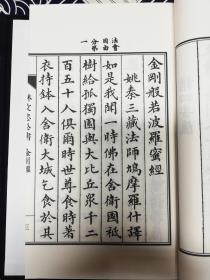 金剛般若波羅蜜經
姚秦三藏法師鳩摩羅什譯
法會
因由
分第
一
如是我聞一時佛在舍衛國祇
樹給孤獨園與大比丘衆千二
百五十人俱爾時世尊食時著
衣持鉢入舍衛大城乞食於其
金剛經
三